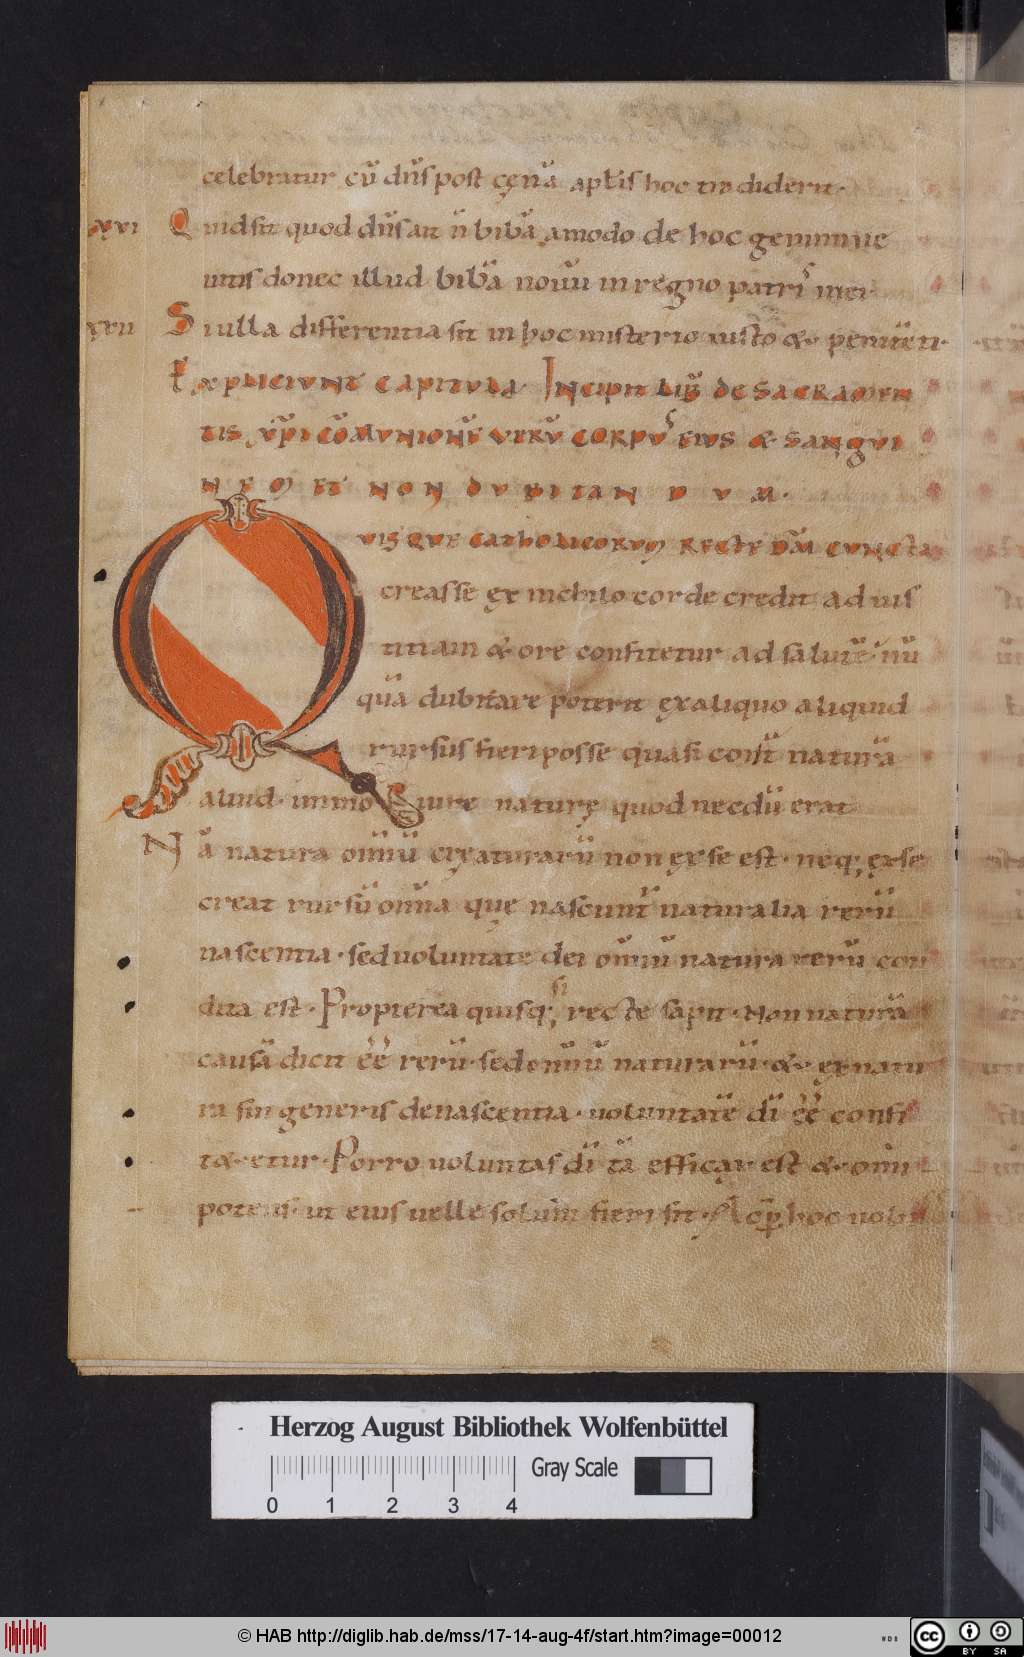 celebratur cū dn̄s post cęnā aplīs hoc tradiderit·
XXI Quid sit quod dn̄s ait n̄ bibā amodo de hoc genimine
uitis donec illud bibā nouū in regno patris mei·
XXII Si ulla differentia sit in hoc misterio iusto & penitēti·
EXPLICIUNT CAPITULA· INCIPIT LIB DE SACRAMEN
TIS XP̄I COMUNIONĒ VERŪ CORPUS EIUS & SANGUI
NEM ET NON DUBITANDUM·
QUISQUE CATHOLICORUM RECTE DM̄ CUNCTA
creasse ex nichilo corde credit ad ius
titiam & ore confitetur ad salutē· nū
quā dubitare poterit ex aliquo aliquid
rursus fieri posse quasi cont̄ naturā
aliud· immo iure naturę quod necdū erat
Nā natura om̄iū creaturarū non ex se est· neq; ex se
creat rursū om̄ia que nascunt̄ naturalia rerū
nascentia· sed uoluntate dei om̄iū natura rerū con
dita est· Propterea quisq; si recte sapit· Non naturā
causā dicit ēē rerū· sed om̄iū naturarū· & ex natu
ra sui generis denascentia· uoluntatē dī ēē confi
t&etur· Porro uoluntas dī tā efficax est & omni
potens· ut eius uelle solum fieri sit· hoc
Herzog August Bibliothek Wolfenbüttel
Gray Scale
0 1 2 3 4
© HAB http://diglib.hab.de/mss/17-14-aug-4f/start.htm?image=00012
WDB
CC BY SA